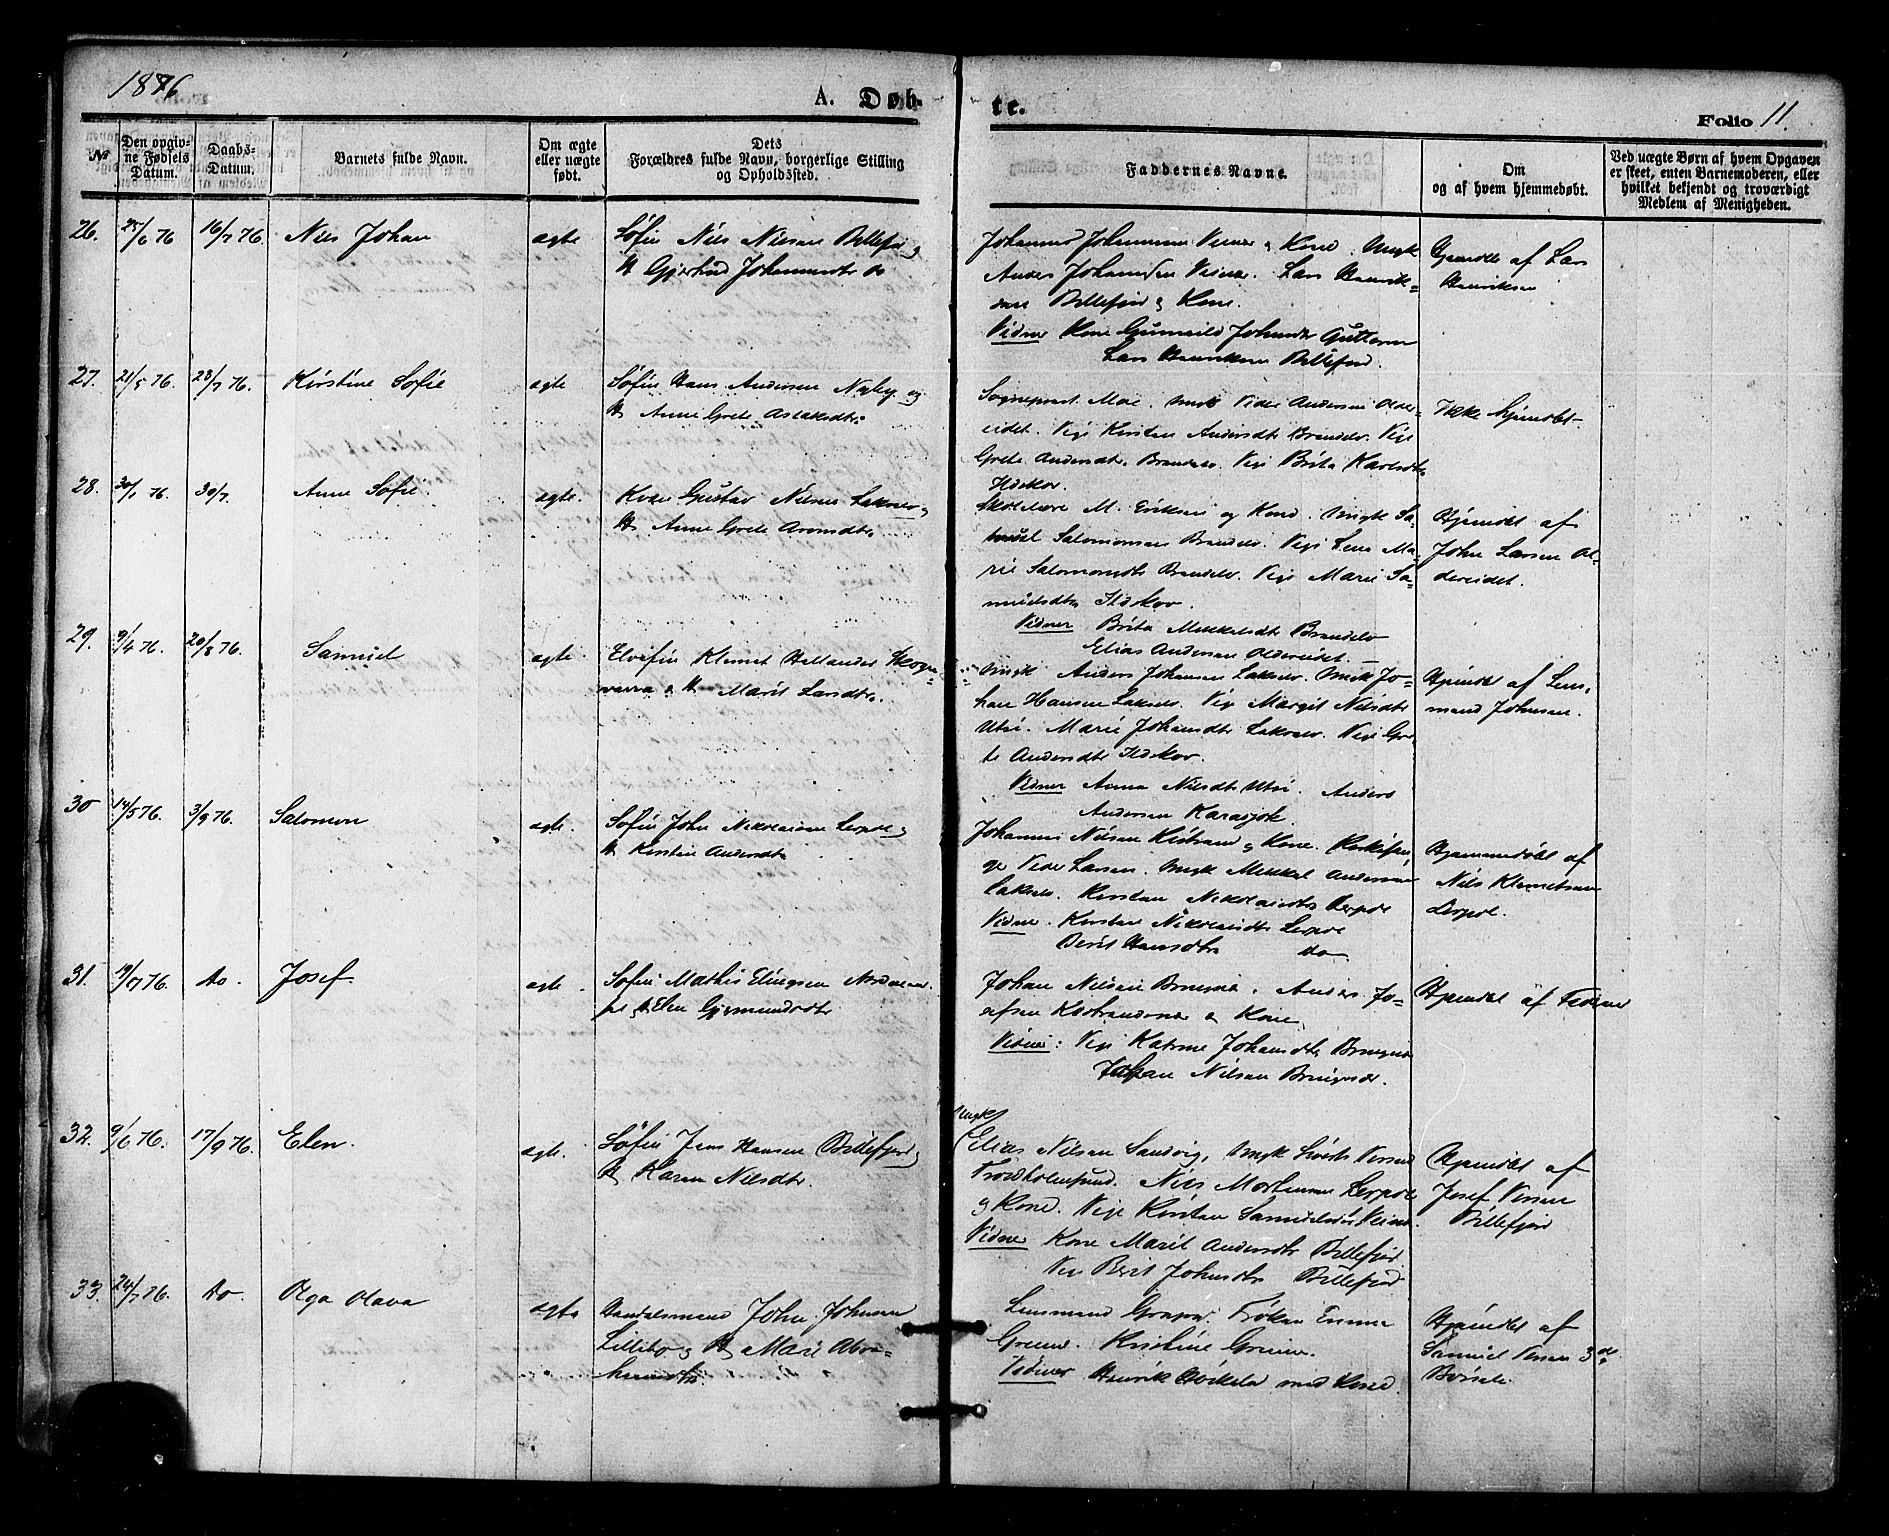 1876
A. Døb-
te.
Folio 11.
№
Den opgiv-
ne Fødsels
Datum.
Daabs-
Datum.
Barnets fulde Navn.
Om ægte
eller uægte
født.
Dets
Forældres fulde Navn, borgerlige Stilling
og Opholdssted.
Faddernes Navne.
Om
og af hvem hjemmedøbt.
Ved uægte Børn af hvem Opgaven
er skeet, enten Barnemoderen, eller
hvilket bekjendt og troværdigt
Medlem af Menigheden.
26.
25/6 76
16/7 76.
Nils Johan
ægte
Søfin Nils Nilsen Billefjo og
H Gjertrud Johannesdtr do
Johannes Johannesen Veines & Kone. Ungk
Anders Johannesen Veines. Lars Henrik-
sen Billefjord og Kone.
Vidner Kone Gunneild Johnsdtr
Lars Henriksen Billefjord.
Hjemdbt af Lars
Henriksen
27.
21/5 76.
23/7 76.
Kirstine Sofie
ægte
Søfin Hans Andersen Nyby og
H Anne Grete Aslaksdtr.
Sogneprest Moe. Ungk Peder Andersen Older-
eidet. Pige Kirsten Andersdtr Brændelv. Pige
Grete Andersdtr. Brændelv. Pige Brita Karlsdtr
Ildskov.
Ikke hjemdbt
28.
30/1 76.
30/7.
Anne Sofie.
ægte.
Kvæn Gustav Nilsen Lakselv og
H Anne Grete Aronsdtr.
Skolelærer M. Eriksen og Kone. Ungk Sa-
muel Salomonsen Brændelv. Pige Lena Ma-
rie Salomonsdtr Brændelv. Pige Marie Sa-
muelsdtr Ildskov.
Vidner Brita Mikkelsdtr Brændelv
Elias Andersen Oldereidet.
Hjemdbt af
John Larsen Ol-
dereidet.
29.
9/4 76.
20/8 76.
Samuel
ægte.
Elvefin Klemet Hellander Skoga-
varra & H Marit Larsdtr.
Ungk Anders Johansen Lakselv. Ungk Jo-
han Hansen Lakselv. Pige Margit Nilsdtr
Utsi. Marie Johansdtr Lakselv. Pige Gre-
te Andersdtr Ildskov
Vidner Anna Nilsdtr Utsi. Anders
Andersen Karasjok.
Hjemdbt af Lens-
mand Johnsen.
30
14/5 76.
3/9 76.
Salomon
ægte.
Søfin John Nikolaisen Leipol og
H Kirsten Andersdtr
Johannes Nilsen Kistrand og Kone.
Peder Larsen. Ungk Mikkel Andersen
Lakselv. Kirsten Nikolaisdtr Leipol
Vidner. Kirsten Nikolaisdtr Leipol
Berit Hansdtr do
Hjemmedøbt af
Nils Klemetsen
Leipol.
31.
19/7 76.
Do.
Josef.
ægte.
Søfin Mathis Elingsen
H Elen Gjermundsdtr
Johan Nilsen Brugnes. Anders Jo-
sefsen Kistrandsnes & Kone.
Vidner: Pige Katrine Johansdtr Brugnes
Johan Nilsen Brugnes.
Hjemdbt af Faderen
32.
9/6 76.
17/9 76.
Elen.
ægte.
Søfin Jens Hansen Billefjord og
H Karen Nilsdtr
Ungk
Elias Nilsen Sandvig, Ungk Iversen
Troldholmsund. Nils Mortensen Leipol
& Kone. Pige Kirsten Samuelsdtr Veines.
Vidner Kone Marit Andersdtr Billefjord
Pige Berit Johnsdtr Billefjord
Hjemdbt af
Josef Iversen
Billefjord
33.
24/7 76.
Do.
Olga Olava
ægte
Handelsmand John Johnsen
Lillebo og H Marie Abra-
hamsdtr.
Lensmand. Frøken Emma
Greiner. Kristine Greiner.
Vidner Henrik med Kone.
Hjemdbt af
Samuel Iversen
Børselv.